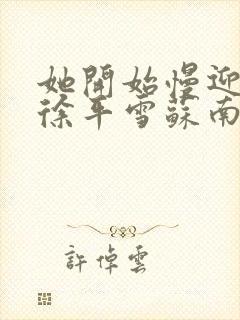 她開始慢迎
徐平雪蘇南
許倬雲